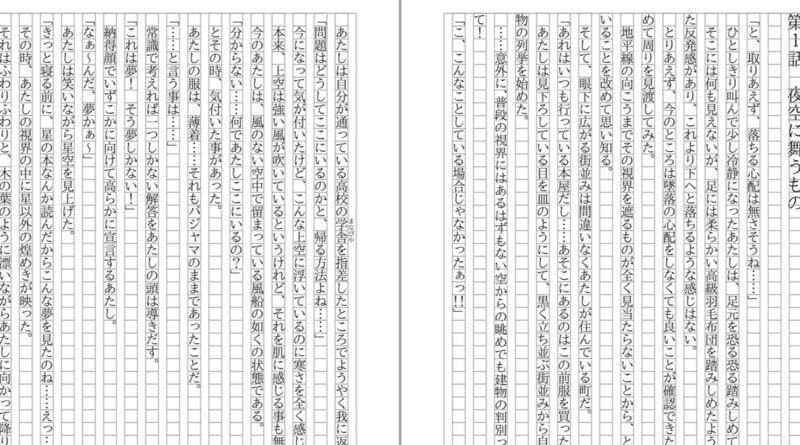 第１話　夜空に舞うもの
「と、取りあえず、落ちる心配は無さそうね……」
ひとしきり叫んで少し冷静になったあたしは、足元を恐る恐る踏みしめて
そこには何も見えないが、足には柔らかい高級羽毛布団を踏みしめたよ
た反発感があり、これより下へと落ちるような感じはない。
とりあえず、今のところは墜落の心配をしなくても良いことが確認でき
めて周りを見渡してみた。
地平線の向こうまでその視界を遮るものが全く見当たらないことから、と
いることを改めて思い知る。
そして、眼下に広がる街並みは間違いなくあたしが住んでいる町だ。
「あれはいつも行っている本屋だし……あそこにあるのはこの前服を買った
あたしは見下ろしている目を皿のようにして、黒く立ち並ぶ街並みから目
物の列挙を始めた。
……意外に、普段の視界にはあるはずもない空からの眺めでも建物の判別っ
て！
「こ、こんなことしている場合じゃなかったぁっ!!」
あたしは自分が通っている高校の学舎を指差したところでようやく我に返
まなびや
「問題はどうしてここにいるのかと、帰る方法よね……」
今になって気が付いたけど、こんな上空に浮いているのに寒さを全く感じ
本来、上空は強い風が吹いているというけれど、それを肌に感じる事も無
今のあたしは、風のない空中で留まっている風船の如くの状態である。
「分からない……何であたしここにいるの？」
とその時、気付いた事があった。
あたしの服は、薄着……それもパジャマのままであったことだ。
「……と言う事は……」
常識で考えれば一つしかない解答をあたしの頭は導きだす。
「これは夢！　そう夢しかない！」
納得顔でいずこかに向けて高らかに宣言するあたし。
「なぁ〜んだ、夢かぁ〜」
あたしは笑いながら星空を見上げた。
「きっと寝る前に、星の本なんか読んだからこんな夢を見たのね……えっ…
その時、あたしの視界の中に星以外の煌めきが映った。
それはふわりふわりと、木の葉のように漂いながらあたしに向かって降り